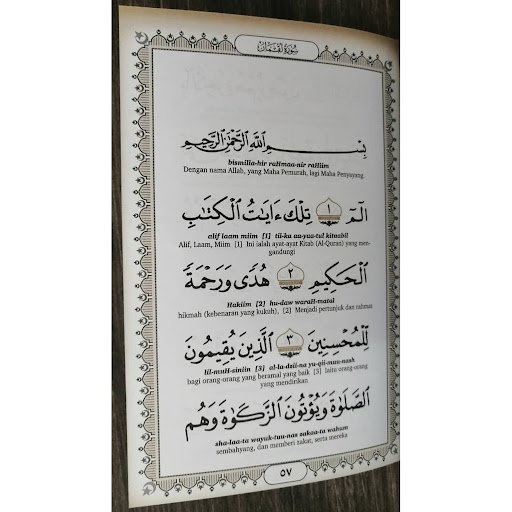 سُورَةُ لُقْمَانَ
بِسْمِ اللَّهِ الرَّحْمَٰنِ الرَّحِيمِ
bismilla-hir raHmaa-nir raHiim
Dengan nama Allah, yang Maha Pemurah, lagi Maha Penyayang.
الٓمٓ ١ تِلْكَ ءَايَٰتُ الْكِتَٰبِ
alif laam miim [1] til-ka aa-yaa-tul kitaabil
Alif, Laam, Miim [1] Ini ialah ayat-ayat Kitab (Al-Quran) yang men-
gandungi
الْحَكِيمِ ٢ هُدًى وَرَحْمَةً
Hakiim [2] hu-daw waraH-matal
hikmah (kebenaran yang kukuh), [2] Menjadi pertunjuk dan rahmat
لِّلْمُحْسِنِينَ ٣ الَّذِينَ يُقِيمُونَ
lil-muH-siniin [3] al-la-dzii-na yu-qii-muu-nash
bagi orang-orang yang beramal yang baik [3] Iaitu orang-orang
yang mendirikan
الصَّلَوٰةَ وَيُؤْتُونَ الزَّكَوٰةَ وَهُم
sha-laa-ta wayuk-tuu-nas zakaa-ta wahum
sembahyang, dan memberi zakat, serta mereka
٥٧